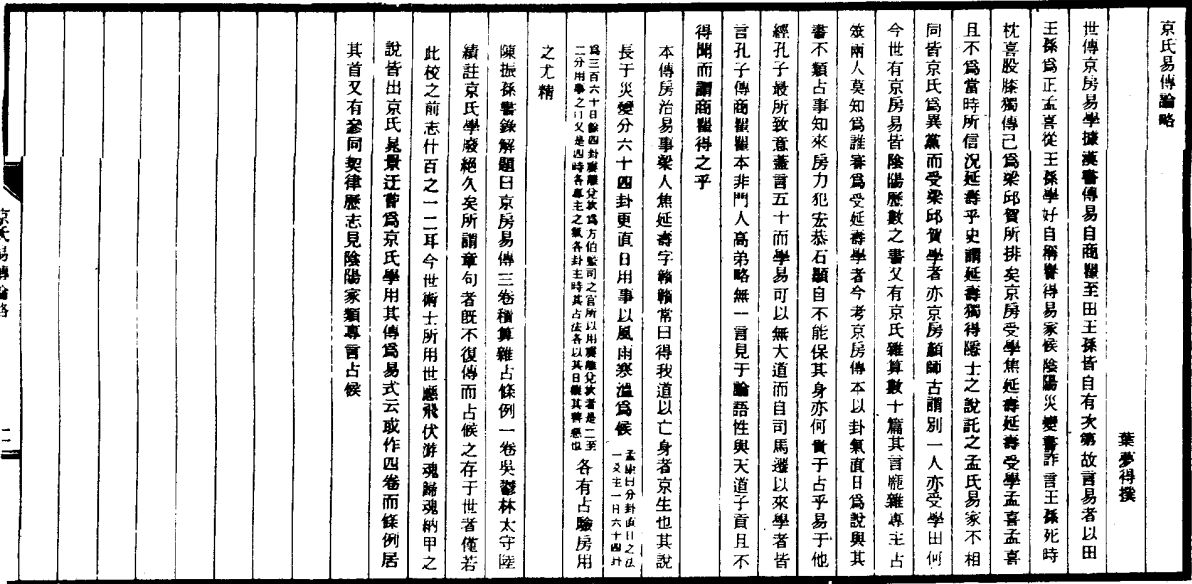 京氏易傳論略
葉夢得撰
世傳京房易學據漢書傳易自商瞿至田王孫皆自有次第故言易者以田
王孫爲正孟喜從王孫學好自稱譽得易家候陰陽災變書詐言王孫死時
枕喜股膝獨傳己爲梁邱賀所排矣京房受學焦延壽延壽受學孟喜孟喜
且不爲當時所信況延壽乎史謂延壽獨得隱士之說託之孟氏易家不相
同皆京氏爲異黨而受梁邱賀學者亦京房顏師古謂別一人亦受學田何
今世有京房易皆陰陽歷數之書又有京氏雜算數十篇其言龐雜專主占
筮兩人莫知爲誰審爲受延壽學者今考京房傳本以卦氣直日爲說與其
書不類占事知來房力犯宏恭石顯自不能保其身亦何貴于占乎易于他
經孔子最所致意蓋言五十而學易可以無大道而自司馬遷以來學者皆
言孔子傳商瞿瞿本非門人高弟略無一言見于論語性與天道子貢且不
得聞而謂商瞿得之乎
本傳房治易事梁人焦延壽字贛贛常曰得我道以亡身者京生也其說
長于災變分六十四卦更直日用事以風雨寒溫爲候孟康曰分卦直日之法一爻主一日六十四卦
爲三百六十日餘四卦震離兌坎爲方伯監司之官所以用震離兌坎者是二至二分用事之日又是四時各專主之氣各卦主時其占法各以其日觀其善惡也各有占驗房用
之尤精
陳振孫書錄解題曰京房易傳三卷積算雜占條例一卷吳鬱林太守陸
績註京氏學廢絕久矣所謂章句者既不復傳而占候之存于世者僅若
此校之前志什百之一二耳今世術士所用世應飛伏游魂歸魂納甲之
說皆出京氏晁景迂嘗爲京氏學用其傳爲易式云或作四卷而條例居
其首又有參同契律歷志見陰陽家類專言占候
京氏易傳論略